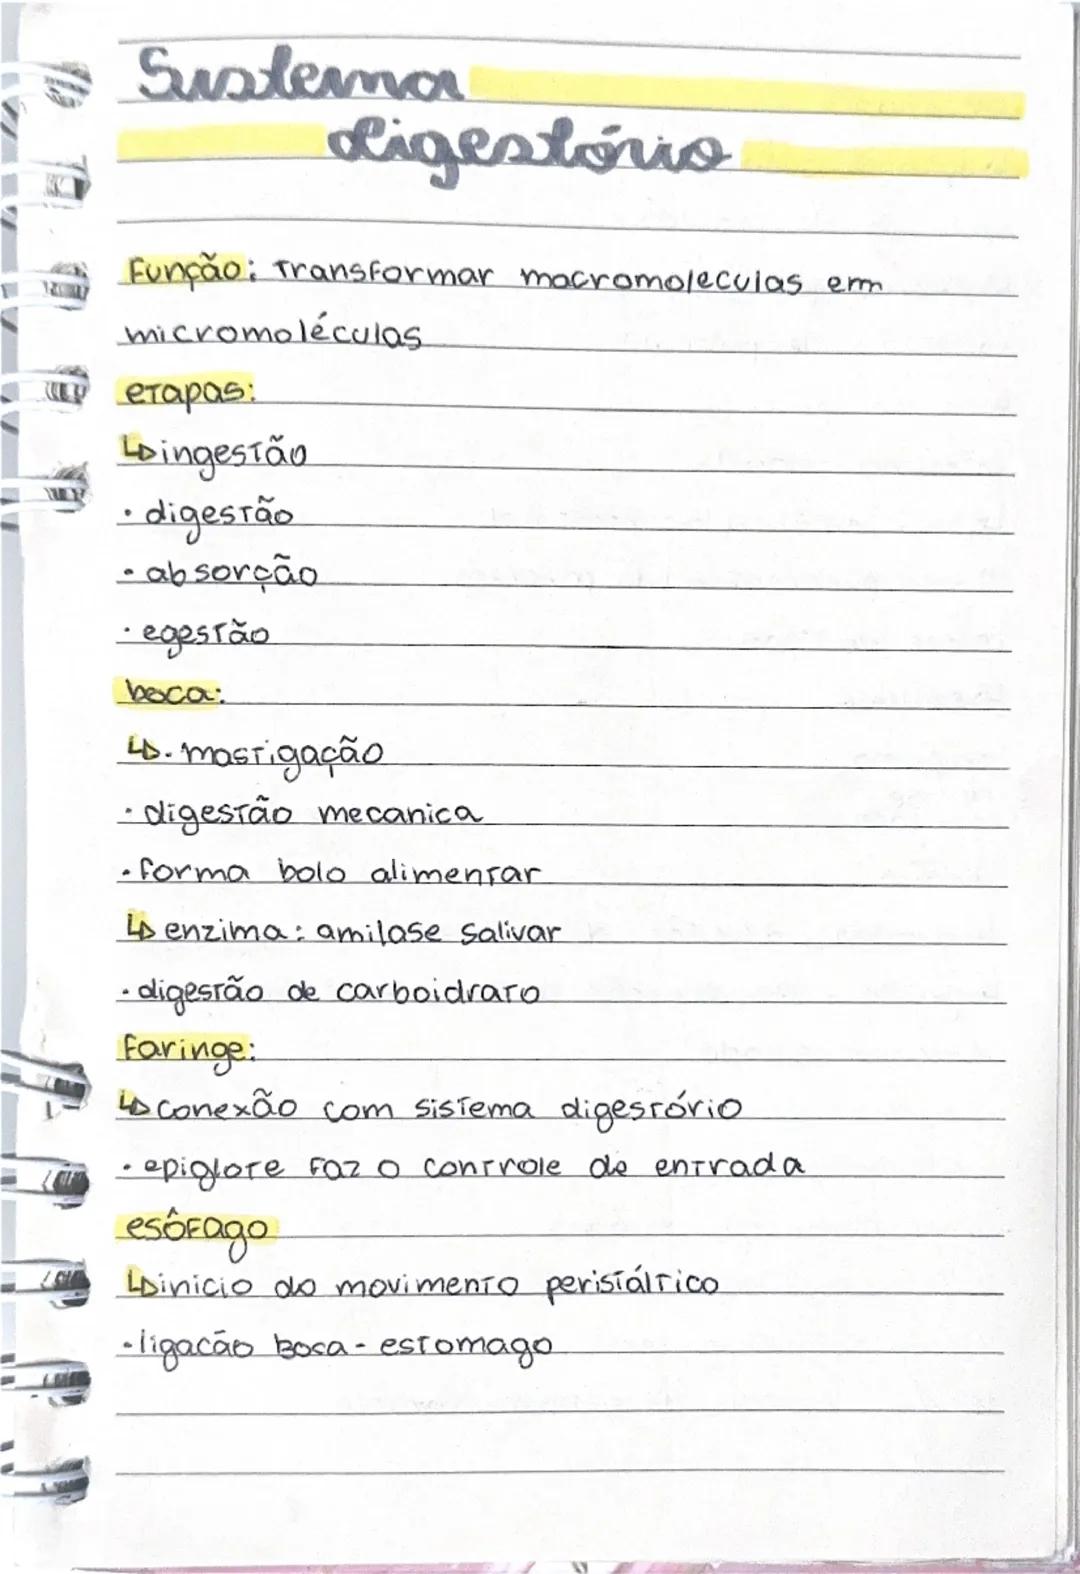 Sistema
digestório
Função: Transformar macromoleculas em
micromoléculas
etapas:
↳ingestão
• digestão
• absorção
• egestão
boca:
↳• mastigação
• digestão mecanica
• forma bolo alimentar
↳ enzima: amilase salivar
• digestão de carboidrato
Faringe:
↳ conexão com sistema digestório
• epiglote faz o controle de entrada
esôfago
↳inicio do movimento peristáltico
• ligacão boca - estomago